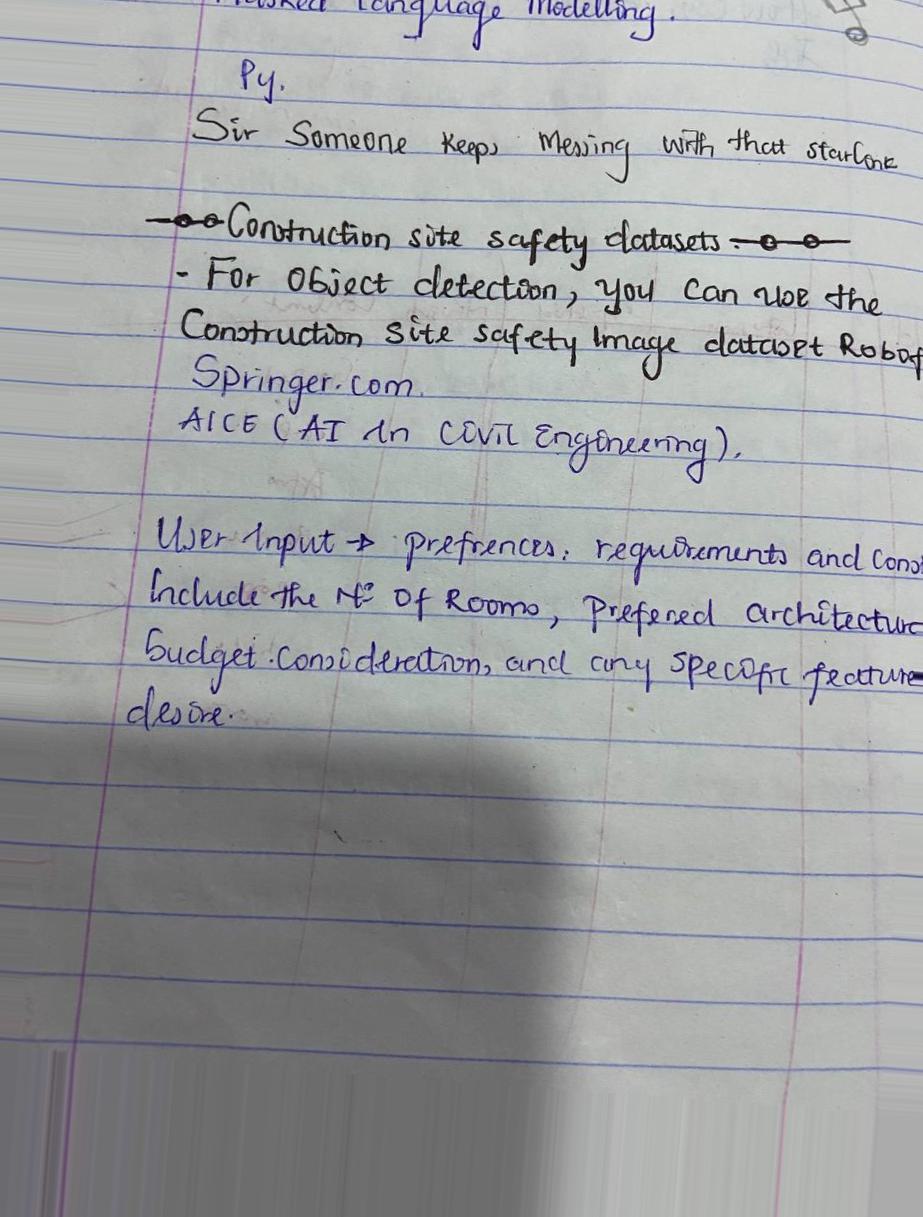 Language Modelling.
Py.
Sir Someone Keeps Messing with that starlink
Construction site safety datasets.
- For Object detection, you can use the
Construction Site safety Image dataset Robof
Springer.com.
AICE (AI In Civil Engineering).
User Input → prefrences, requirements and Cons
Include the Nº Of Rooms, Preferred architectur
budget consideration, and any specific feature
desire.